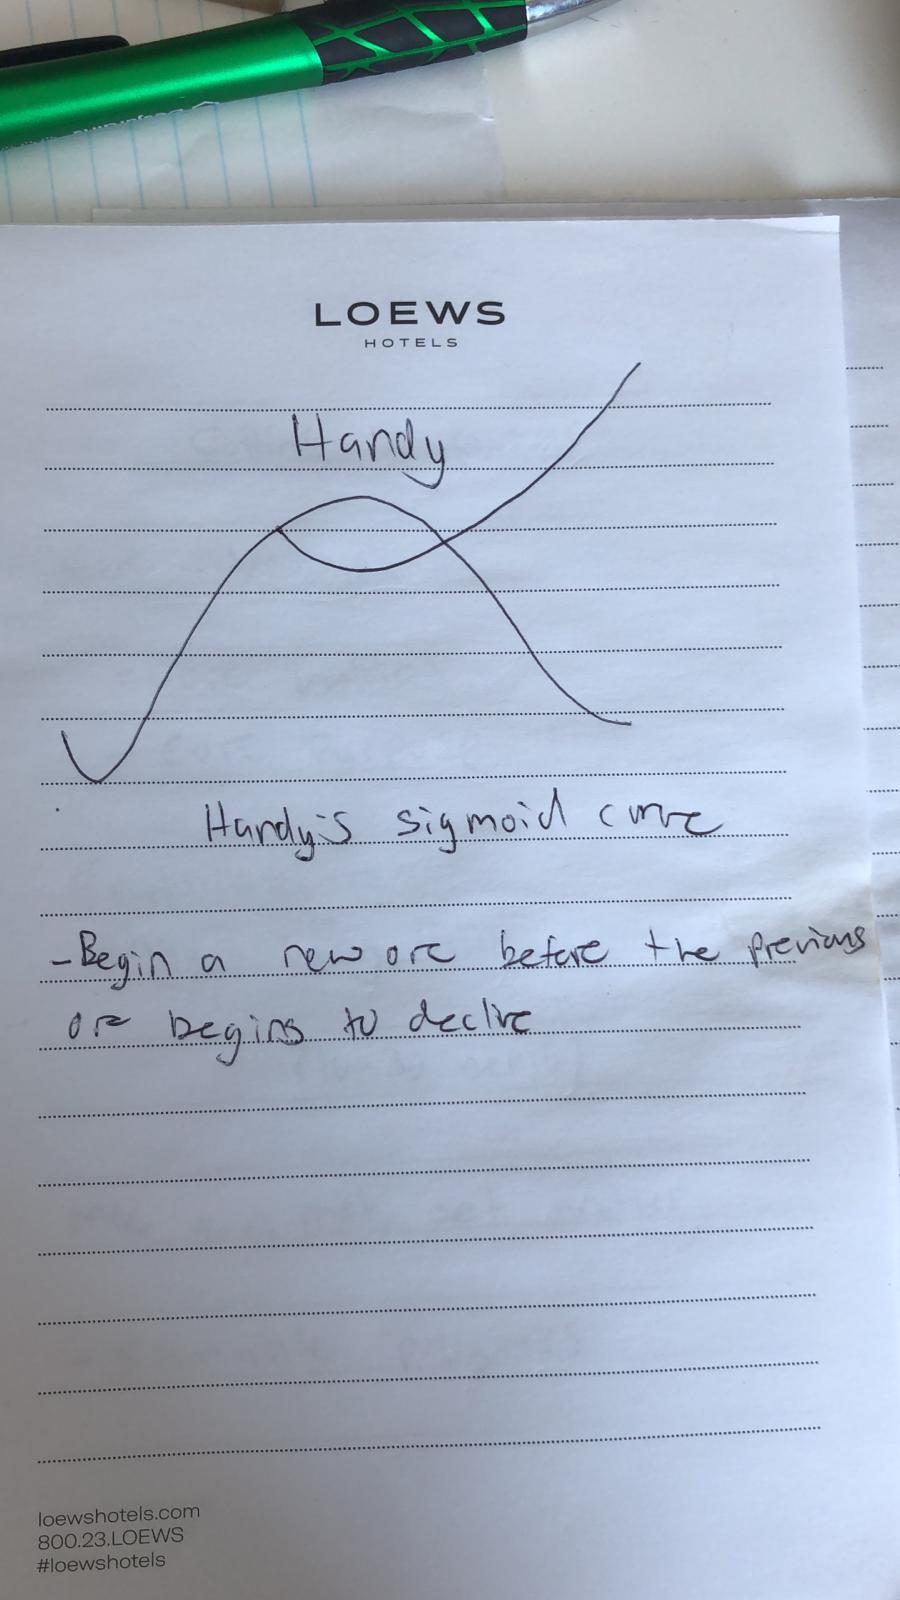 LOEWS
HOTELS
Handy
Handy's sigmoid curve
- Begin a new one before the previous
one begins to decline
loewshotels.com
800.23.LOEWS
#loewshotels